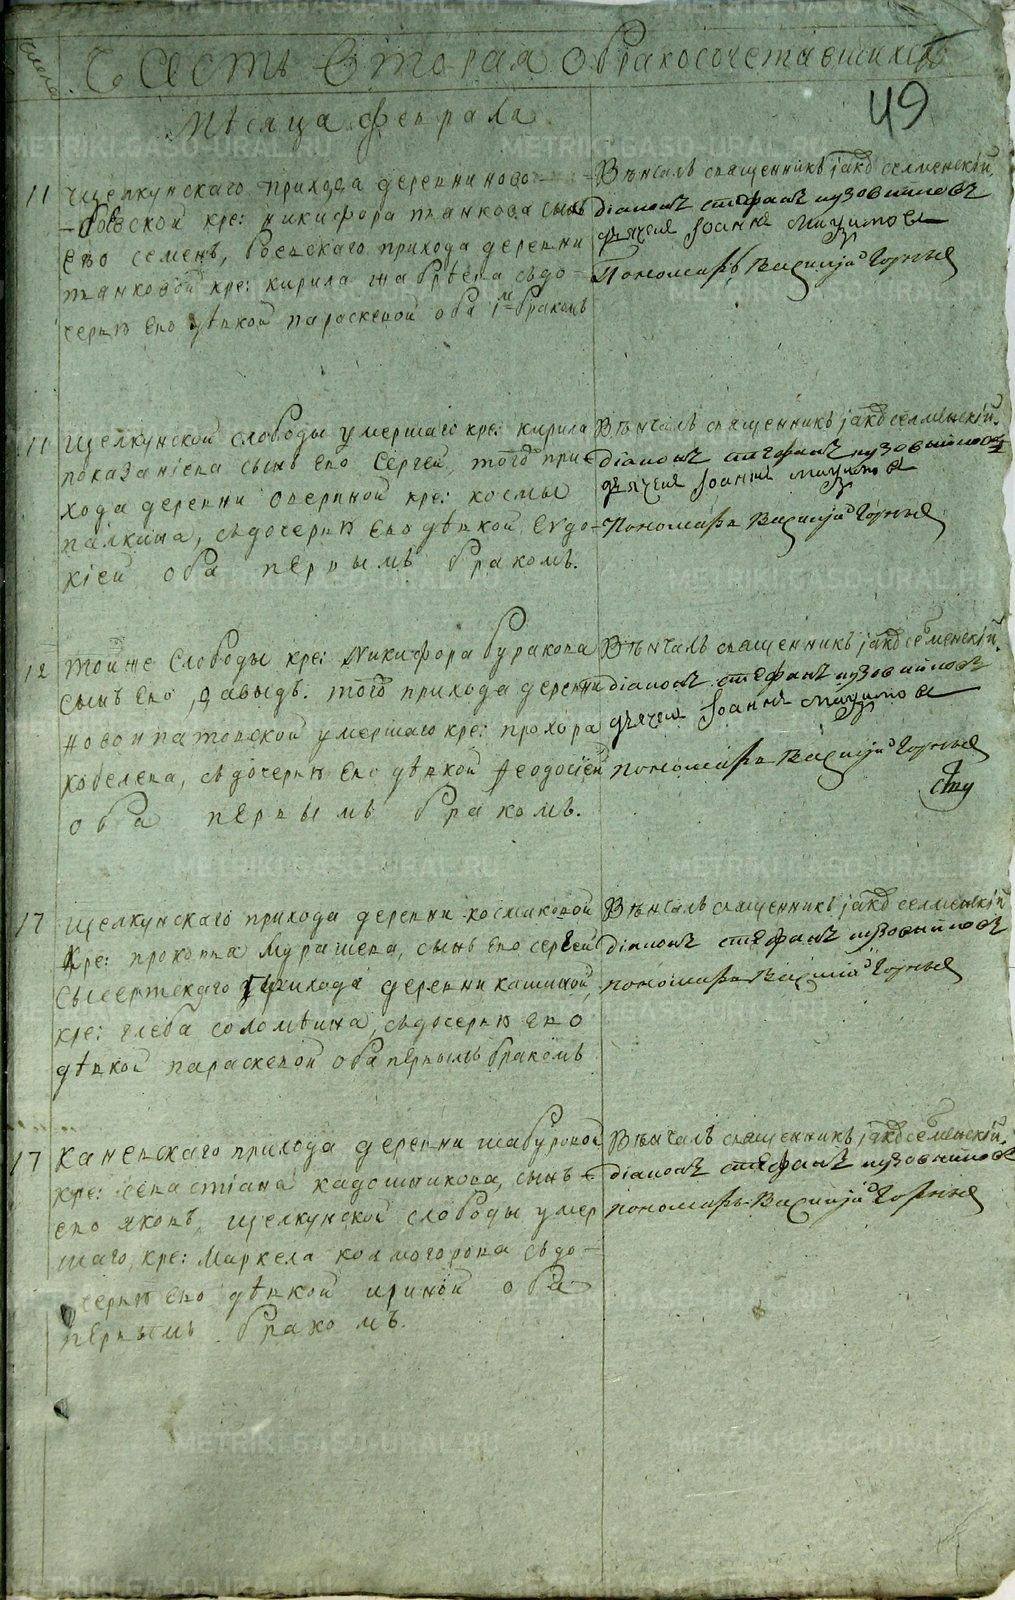 Часть вторая о бракосочетавшихся
49
числа
Мѣсяца февраля
11 Щелкунскаго прихода деревни ново-
кре: никифора панкова сынъ
ево семенъ, прихода деревни
кре: кирила съ до-
черью ево дѣвкой параскевой оба 1мъ бракомъ
Вѣнчалъ священникъ іаковъ селменскій
діаконъ стефанъ
дьячекъ Іоаннъ
Пономарь Василій Горныхъ
11 Щелкунской слободы умершаго кре: кирила
сынъ ево Сергей, того при-
хода деревни кре: космы
палкина, съ дочерью ево дѣвкой евдо-
кіей оба первымъ бракомъ.
Вѣнчалъ священникъ іаковъ селменскій
діаконъ стефанъ
дьячекъ Іоаннъ
Пономарь Василій Горныхъ
12 Той же Слободы кре: Никифора буракова
сынъ ево давыдъ. того прихода деревни
новоипатовской умершаго кре: прохора
кобелева, съ дочерью ево дѣвкой феодосіей
оба первымъ бракомъ.
Вѣнчалъ священникъ іаковъ селменскій
діаконъ стефанъ
дьячекъ Іоаннъ
пономарь Василій Горныхъ
17 Щелкунскаго прихода деревни космаковой
кре: прокопья Мурашева, сынъ ево сергей
Сысертскаго прихода деревни кашиной
кре: глеба соломѣина, съ дочерью ево
дѣвкой параскевой оба первымъ бракомъ
Вѣнчалъ священникъ іаковъ селменскій
діаконъ стефанъ
пономарь Василій Горныхъ
17 Каменскаго прихода деревни шабуровой
кре: севастіана кадошникова, сынъ
ево яковъ, Щелкунской слободы умер
шаго, кре: Маркела колмогорова съ до-
черью ево дѣвкой ириной оба
первымъ бракомъ.
Вѣнчалъ священникъ іаковъ селменскій
діаконъ стефанъ
пономарь Василій Горныхъ
METRIKI.GASO-URAL.RU